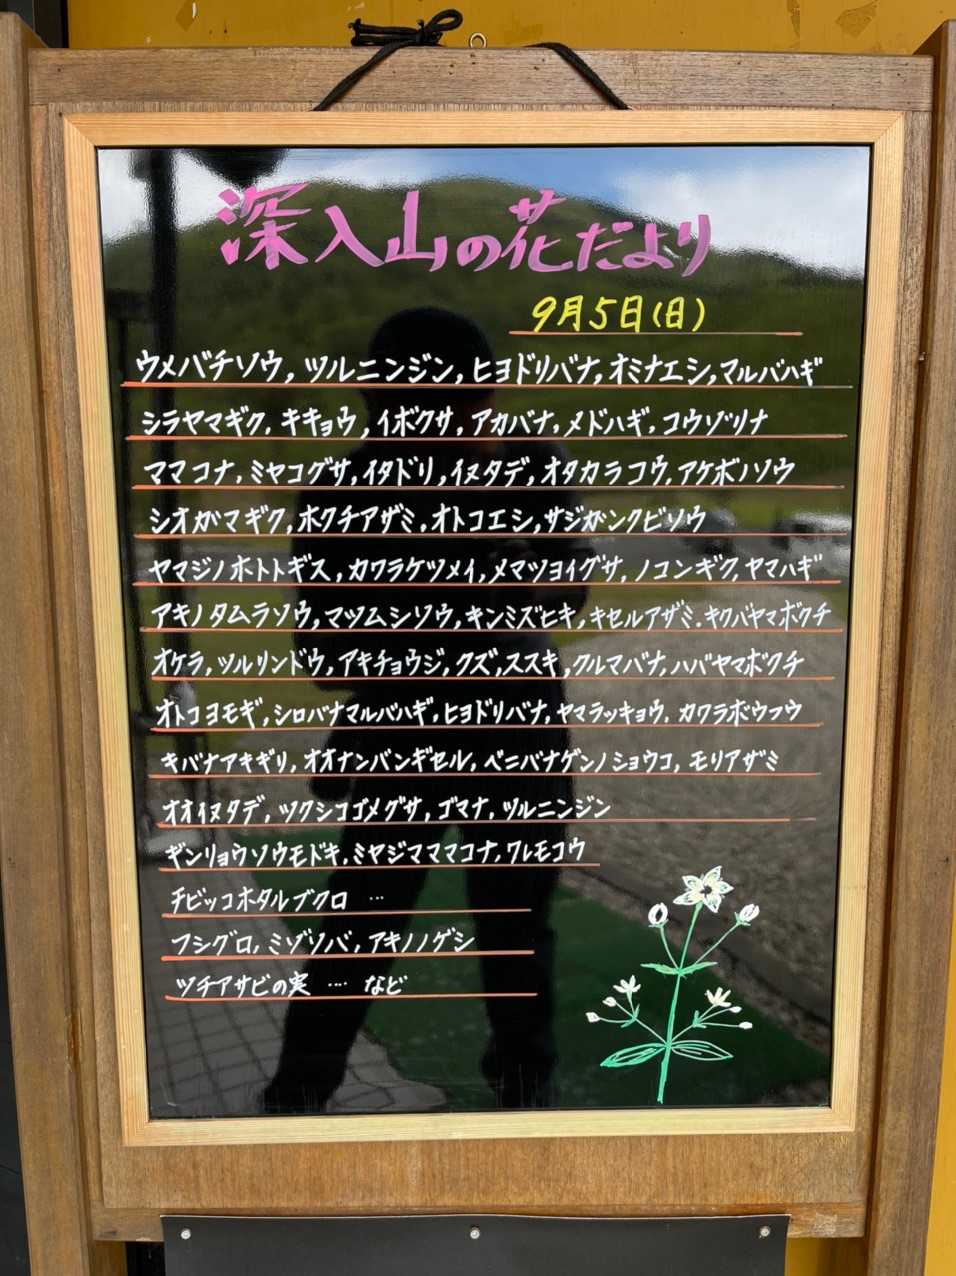 深入山の花だより
9月5日(日)
ウメバチソウ, ツルニンジン, ヒヨドリバナ, オミナエシ, マルバハギ
シラヤマギク, キキョウ, イボクサ, アカバナ, メドハギ, コウゾリナ
ママコナ, ミヤコグサ, イタドリ, イヌタデ, オタカラコウ, アケボノソウ
シオガマギク, ホクチアザミ, オトコエシ, サジガンクビソウ
ヤマジノホトトギス, カワラケツメイ, メマツヨイグサ, ノコンギク, ヤマハギ
アキノタムラソウ, マツムシソウ, キンミズヒキ, キセルアザミ, キクバヤマボクチ
オケラ, ツルリンドウ, アキチョウジ, クズ, ススキ, クルマバナ, ハバヤマボクチ
オトコヨモギ, シロバナマルバハギ, ヒヨドリバナ, ヤマラッキョウ, カワラボウフウ
キバナアキギリ, オオナンバンギセル, ベニバナゲンノショウコ, モリアザミ
オオイヌタデ, ツクシコゴメグサ, ゴマナ, ツルニンジン
ギンリョウソウモドキ, ミヤジマママコナ, ワレモコウ
チビッコホタルブクロ …
フシグロ, ミゾソバ, アキノノゲシ
ツチアサビの実 … など